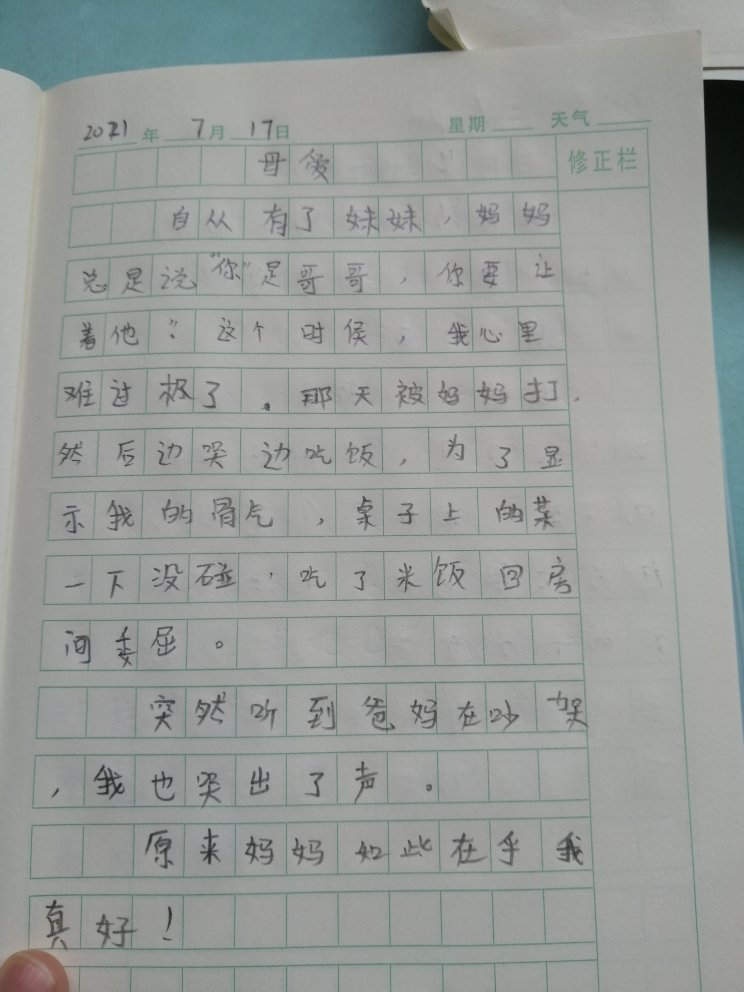 2021年 7月 17日 星期 天气
母爱 修正栏
自从有了妹妹，妈妈
总是说“你”是哥哥，你要让
着他”。这个时候，我心里
难过极了。那天被妈妈打.
然后边哭边吃饭，为了显
示我的骨气，桌子上的菜
一下没碰，吃了米饭回房
间委屈。
突然听到爸妈在吵架
，我也哭出了声。
原来妈妈如此在乎我
真好！